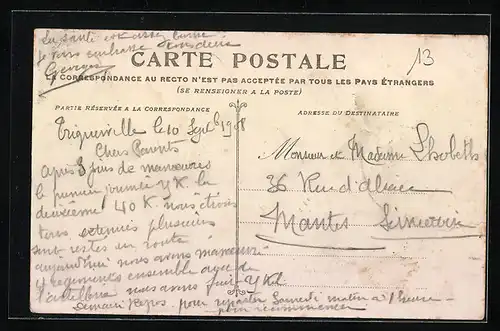 La santé est assez bonne
je vous embrasse tous deux
Georges
13
CARTE POSTALE
LA CORRESPONDANCE AU RECTO N'EST PAS ACCEPTÉE PAR TOUS LES PAYS ÉTRANGERS
(SE RENSEIGNER A LA POSTE)
PARTIE RÉSERVÉE A LA CORRESPONDANCE
ADRESSE DU DESTINATAIRE
le 10 Septb 1908
Chers Parents
après 3 jours de manoeuvres
la première journée K. la
deuxième 40 K. nous étions
tous exténués plusieurs
sont restés en route
aujourd'hui nous avons manoeuvré
4 régiments ensemble avec de
l'artillerie nous avons fait K
Demain Repos. pour repartir Samedi matin à 1 heure
pour recommencer
Monsieur et Madame
36 Rue d'
Mantes